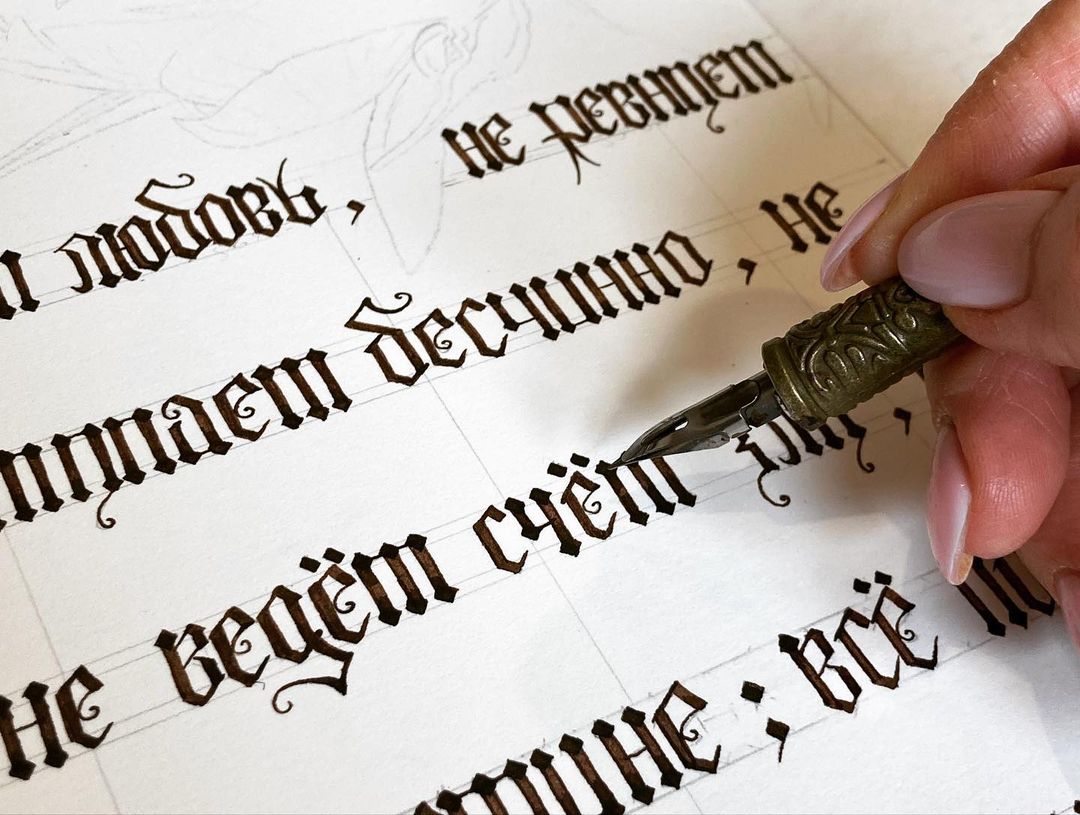 любовь, не ревнует
тупает бесчинно, не
не ведёт счёт злу,
тине; всё